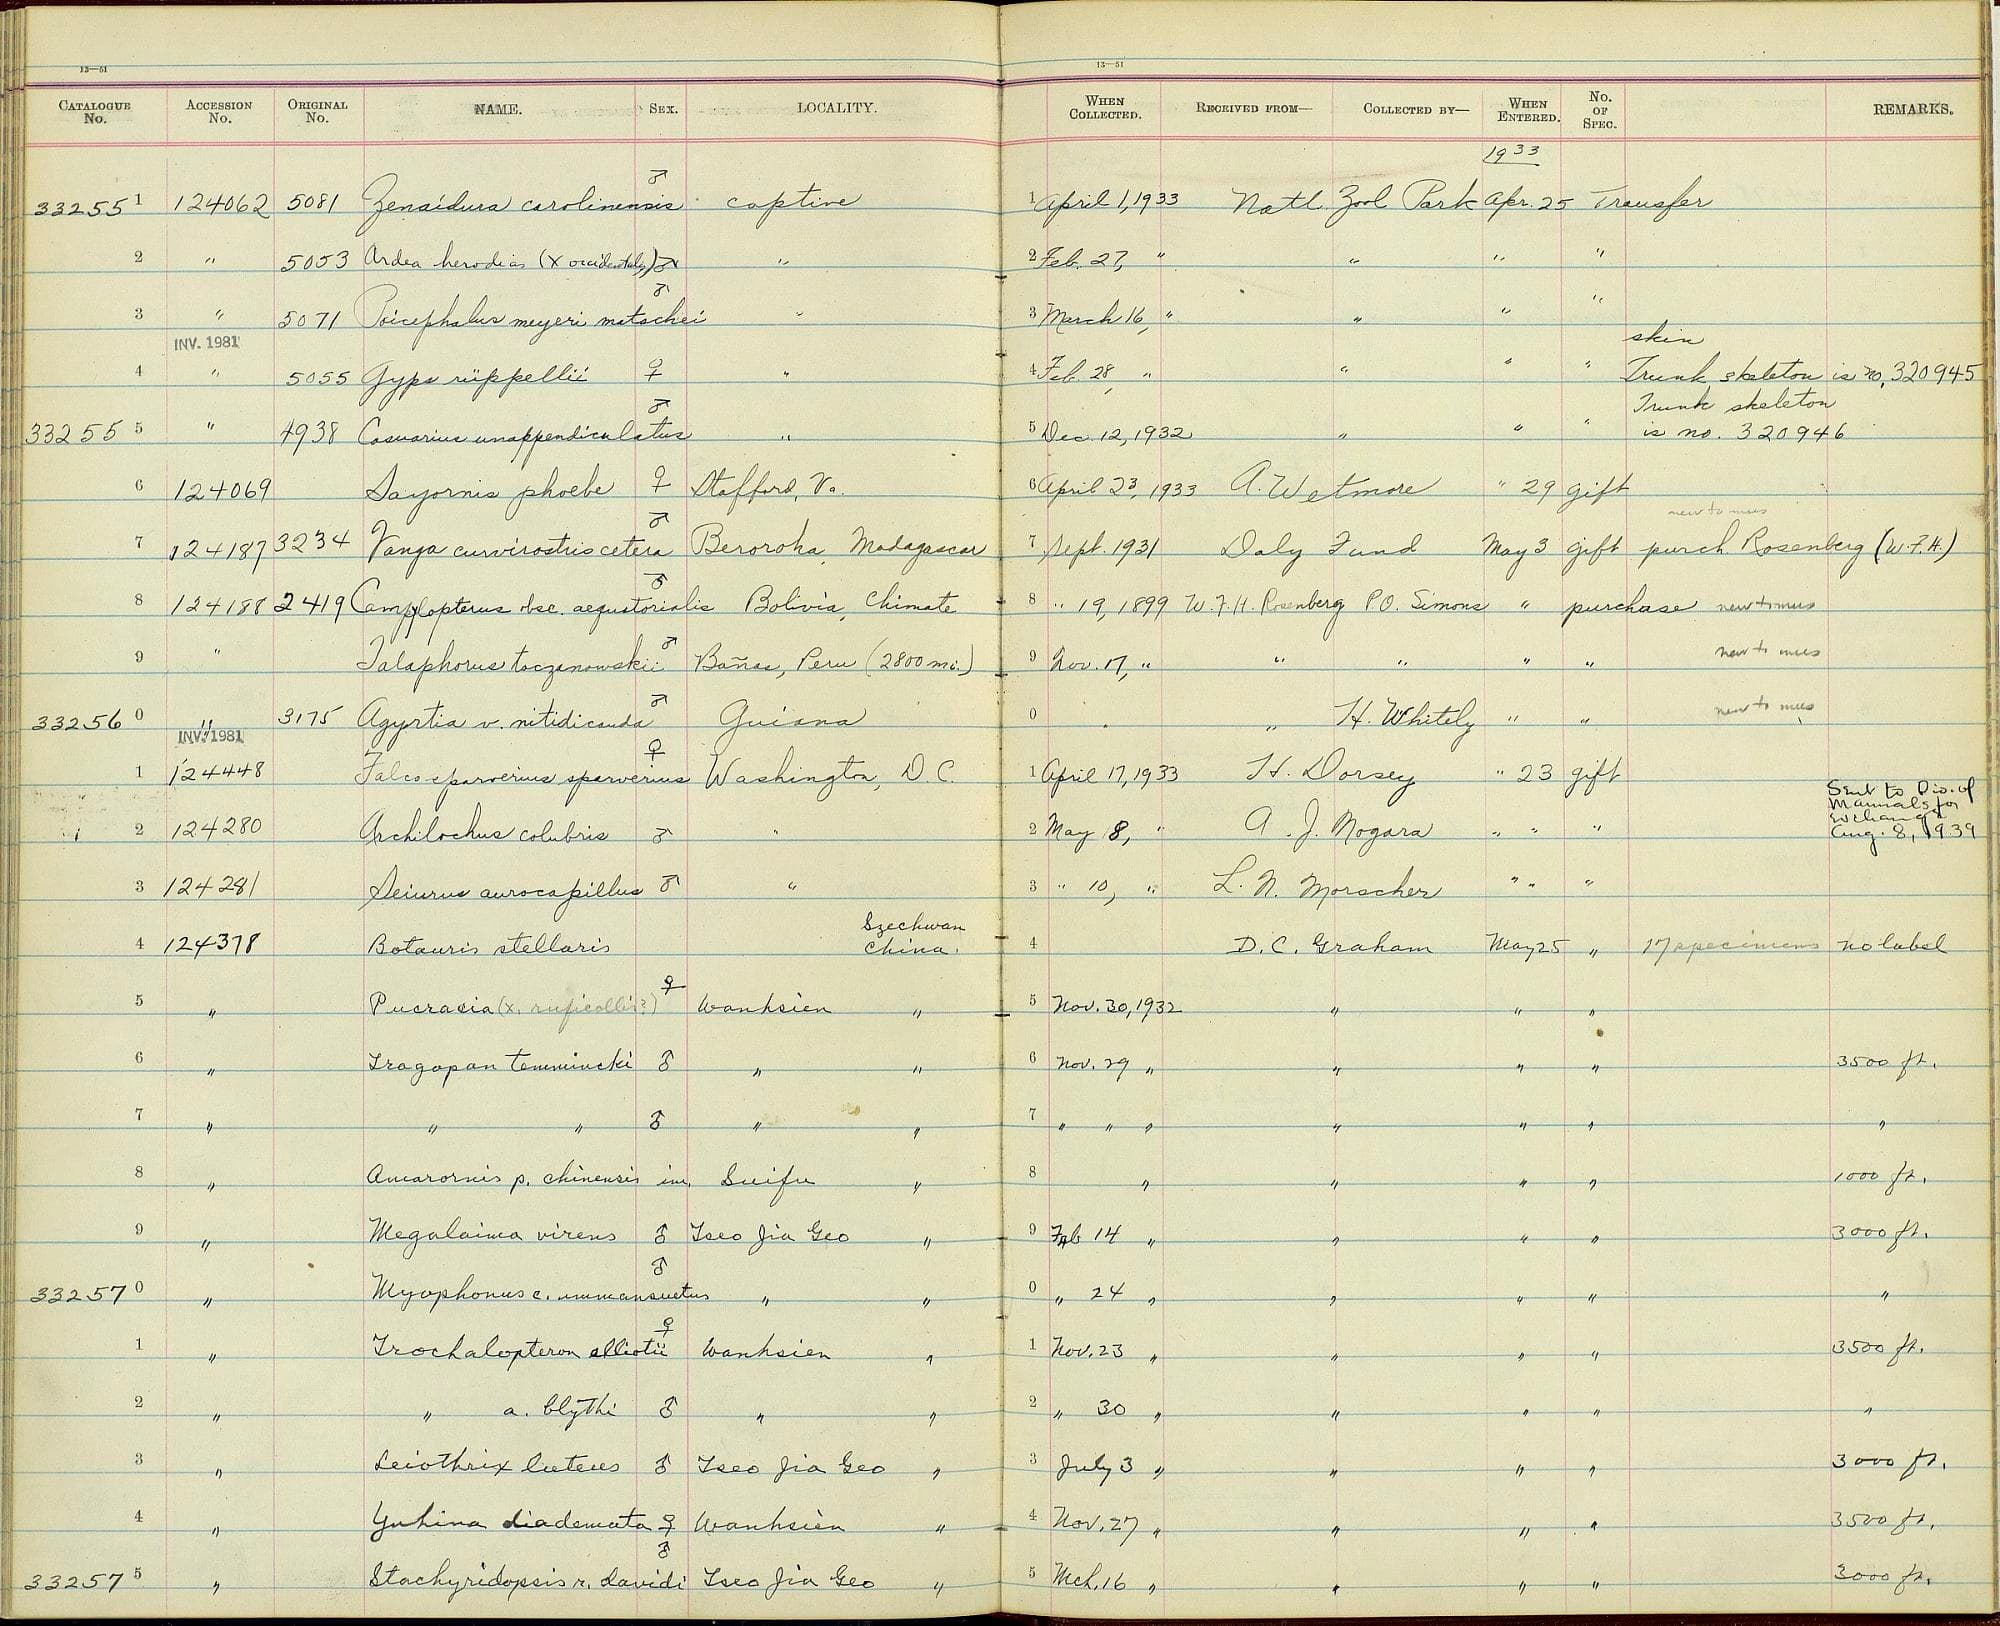 13—51 13—51
CATALOGUE No. ACCESSION No. ORIGINAL No. NAME. SEX. LOCALITY. WHEN COLLECTED. RECEIVED FROM— COLLECTED BY— WHEN ENTERED. No. OF SPEC. REMARKS.
1933
33255 1 124062 5081 Zenaidura carolinensis ♂ captive 1 April 1, 1933 Natl Zool Park Apr. 25 Transfer
2 " 5053 Ardea herodias (x occidentalis) ♂ " 2 Feb. 27, " " " "
3 " 5071 Poicephalus meyeri matschei ♂ " 3 March 16, " " " "
INV. 1981
skin
4 " 5055 Gyps rüppellii ♀ " 4 Feb. 28, " " " " Trunk skeleton is no. 320945
33255 5 " 4938 Casuarius unappendiculatus ♂ " 5 Dec. 12, 1932 " " " Trunk skeleton
is no. 320946
6 124069 Sayornis phoebe ♀ Stafford, Va. 6 April 23, 1933 A. Wetmore " 29 gift
new to mus
7 124187 3234 Vanga curvirostris cetera ♂ Beroroha, Madagascar 7 Sept. 1931 Daly Fund May 3 gift purch. Rosenberg (W.F.H.)
8 124188 2419 Campylopterus obsc. aequatorialis ♂ Bolivia, Chimate 8 " 19, 1899 W.F.H. Rosenberg P.O. Simons " purchase new to mus
9 " Talaphorus taczanowskii ♂ Bañas, Peru (2800 m.) 9 Nov. 17, " " " " " new to mus
33256 0 " 3175 Agyrtia v. nitidicauda ♂ Guiana 0 " H. Whitely " " new to mus
INV. 1981
1 124448 Falco sparverius sparverius ♀ Washington, D.C. 1 April 17, 1933 H. Dorsey " 23 gift
2 124280 Archilochus colubris ♂ " 2 May 8, " A. J. Nogara " " " Sent to Div. of
Mammals for
exchange
Aug. 8, 1939
3 124281 Seiurus aurocapillus ♂ " 3 " 10, " L. N. Morscher " " "
4 124378 Botauris stellaris Szechwan
China. 4 D. C. Graham May 25 " 17 specimens no label
5 " Pucrasia (x. ruficollis?) ♀ Wanhsien " 5 Nov. 30, 1932 " " "
6 " Tragopan temmincki ♂ " " 6 Nov. 29 " " " " 3500 ft.
7 " " " ♂ " " 7 " " " " " " "
8 " Amarornis p. chinensis im. Suifu " 8 " " " " 1000 ft.
9 " Megalaima virens ♂ Tseo Jia Geo " 9 Feb 14 " " " " 3000 ft.
33257 0 " Myophonus c. immansuetus ♂ " " 0 " 24 " " " " "
1 " Trochalopteron elliotii ♀ Wanhsien " 1 Nov. 23 " " " " 3500 ft.
2 " " a. blythi ♂ " " 2 " 30 " " " " "
3 " Leiothrix luteus ♂ Tseo Jia Geo " 3 July 3 " " " " 3000 ft.
4 " Yuhina diademata ♀ Wanhsien " 4 Nov. 27 " " " " 3500 ft.
33257 5 " Stachyridopsis r. davidi ♂ Tseo Jia Geo " 5 Mch. 16 " " " " 3000 ft.